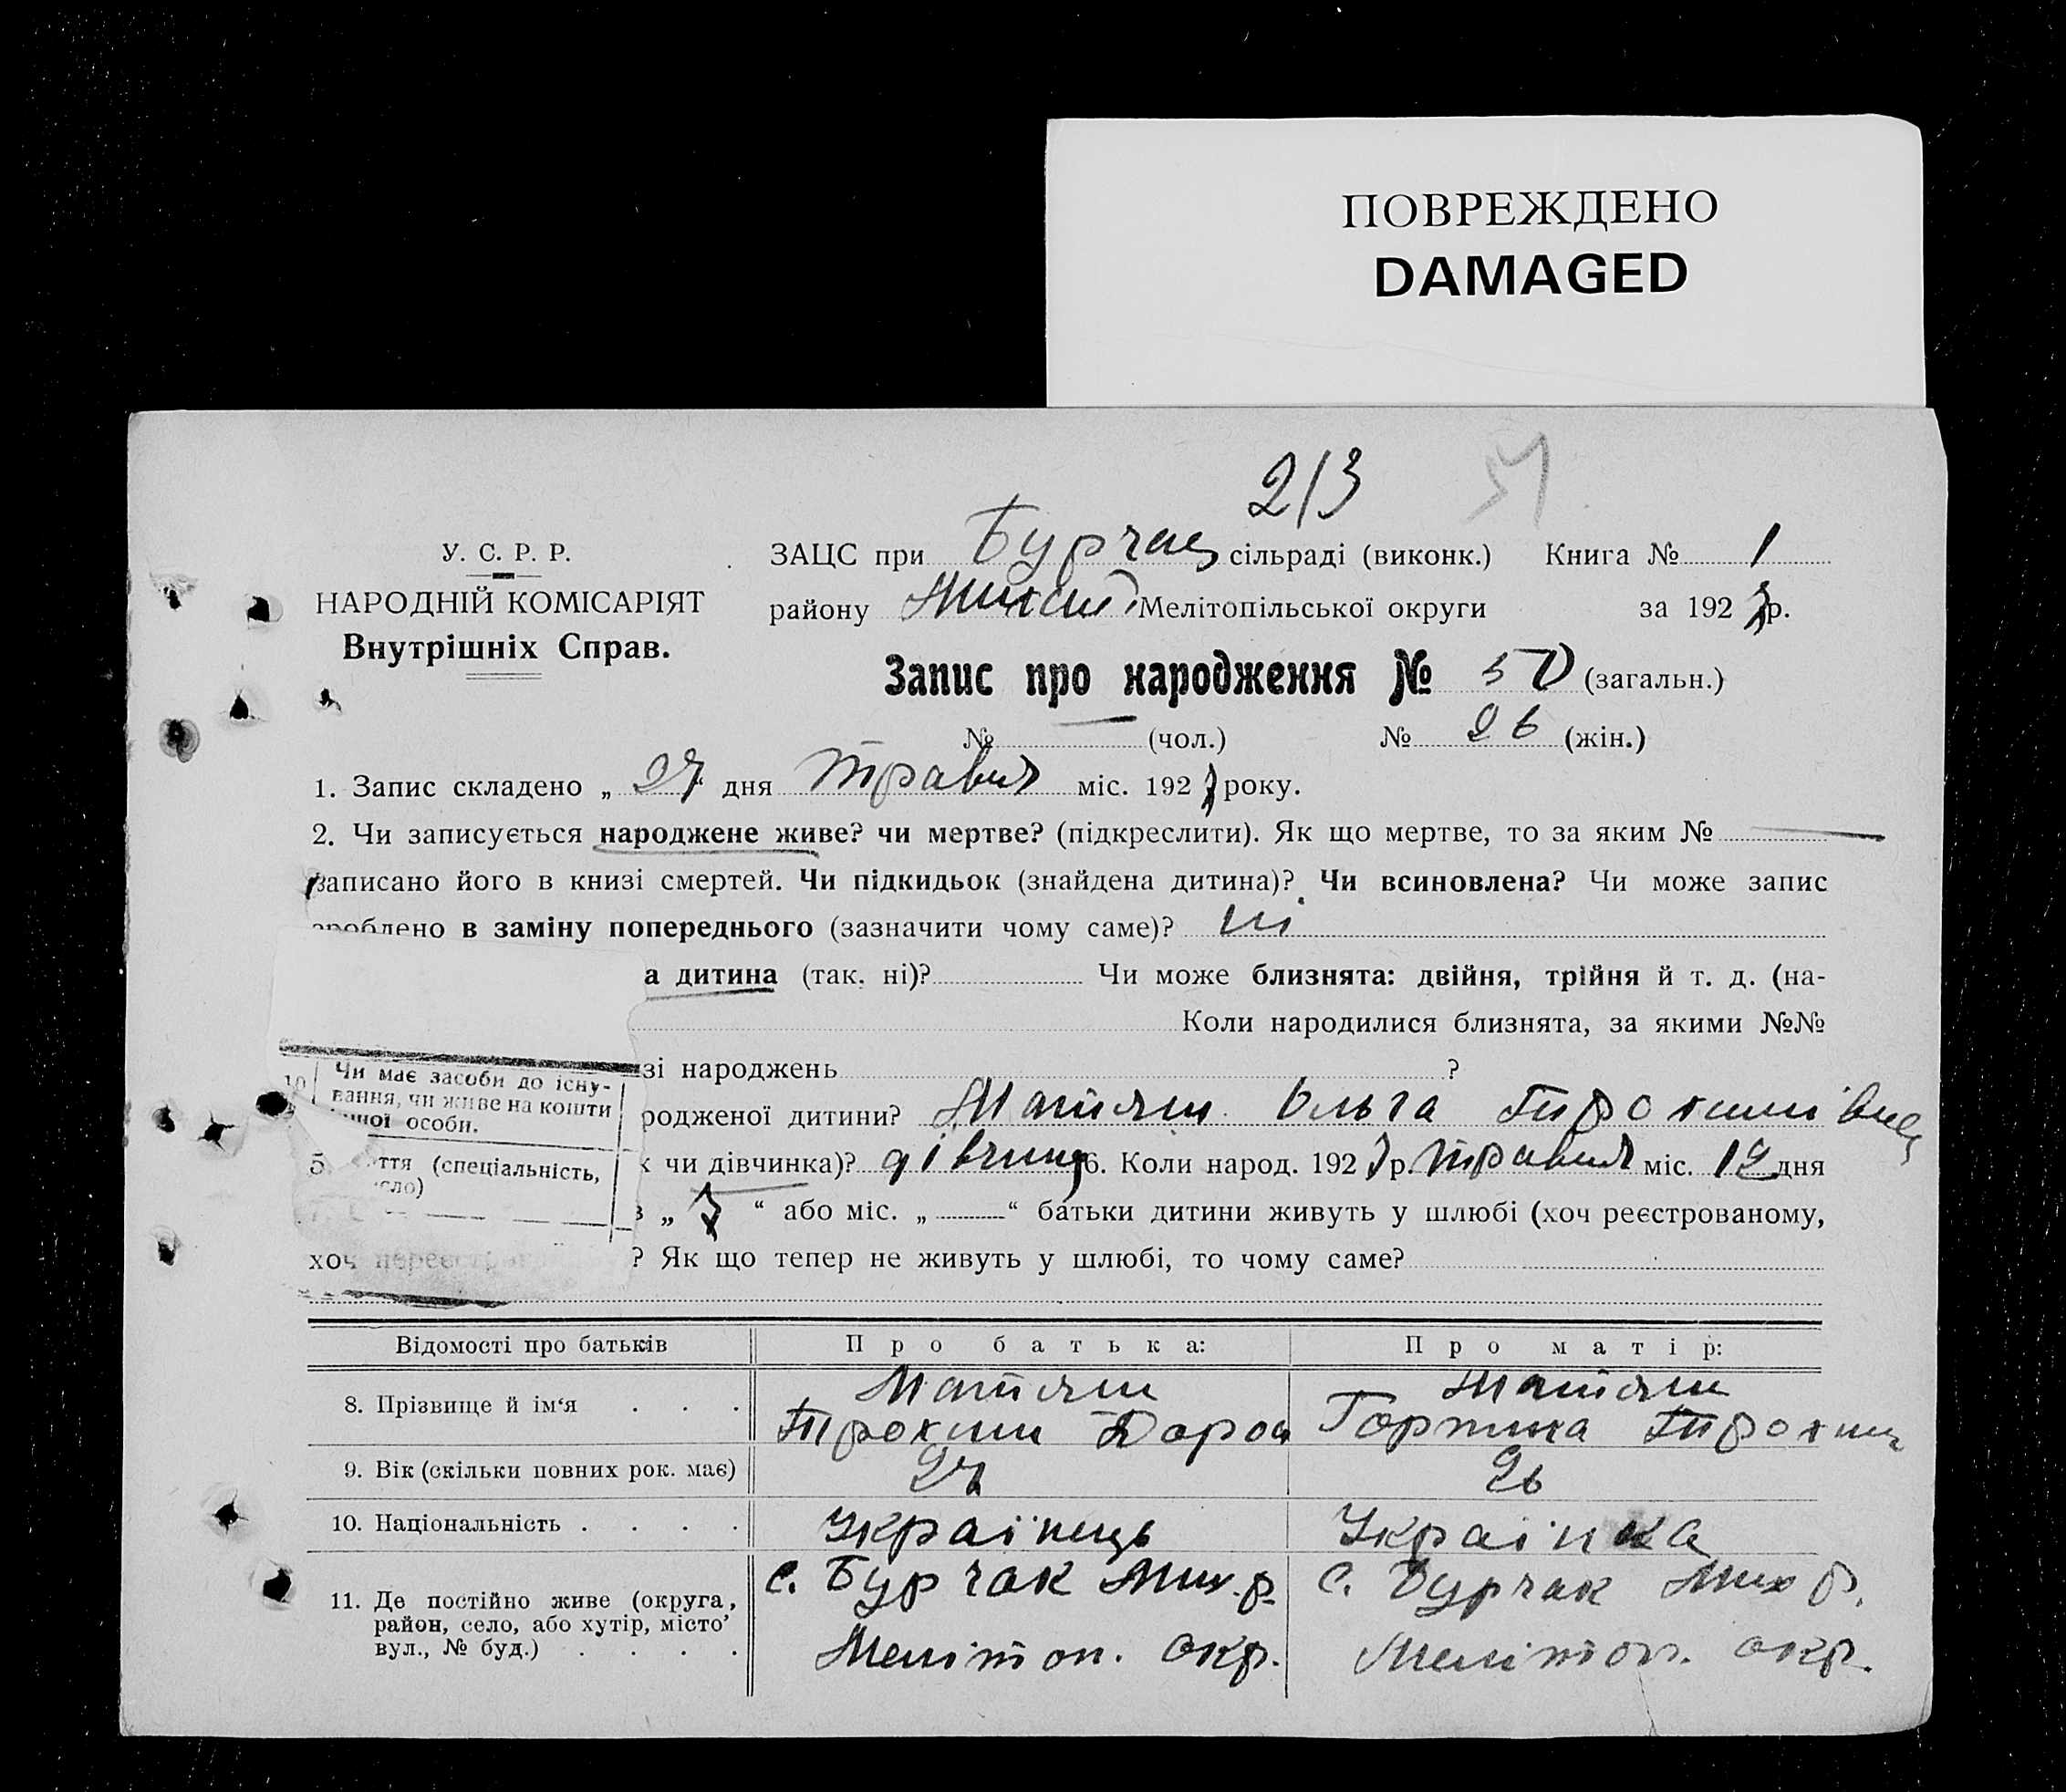 ПОВРЕЖДЕНО
DAMAGED
213
51
У. С. Р. Р.
НАРОДНІЙ КОМІСАРІЯТ
Внутрішніх Справ.
ЗАЦС при Бурчац сільраді (виконк.) Книга № 1
району Мелітопільської округи за 1927 р.
Запис про народження № 50 (загальн.)
№ — (чол.) № 26 (жін.)
1. Запис складено „ 27 “ дня Травня міс. 1927 року.
2. Чи записується народжене живе? чи мертве? (підкреслити). Як що мертве, то за яким № —
записано його в книзі смертей. Чи підкидьок (знайдена дитина)? Чи всиновлена? Чи може запис
зроблено в заміну попереднього (зазначити чому саме)? ні
а дитина (так. ні)? Чи може близнята: двійня, трійня й т. д. (на-
Коли народилися близнята, за якими №№
зі народжень ?
Чи має засоби до існу-
вання, чи живе на кошти
особи.
родженої дитини? Матяш Ольга Трохимівна
5 ття (спеціальність,
сло)
к чи дівчинка)? дівчина 6. Коли народ. 1927 р. Травня міс. 12 дня
з „ 7 “ або міс. „ — “ батьки дитини живуть у шлюбі (хоч реєстрованому,
хоч ? Як що тепер не живуть у шлюбі, то чому саме?
Відомості про батьків Про батька: Про матір:
8. Прізвище й ім‘я . . . Матяш Матяш
Трохим Дороф Горпина Трохим
9. Вік (скільки повних рок. має) 27 26
10. Національність . . . . Українець Українка
11. Де постійно живе (округа, район, село, або хутір, місто’ вул., № буд.) . . . . с. Бурчак Мих. р. с. Бурчак Мих р.
Мелітоп. окр. Мелітоп. окр.